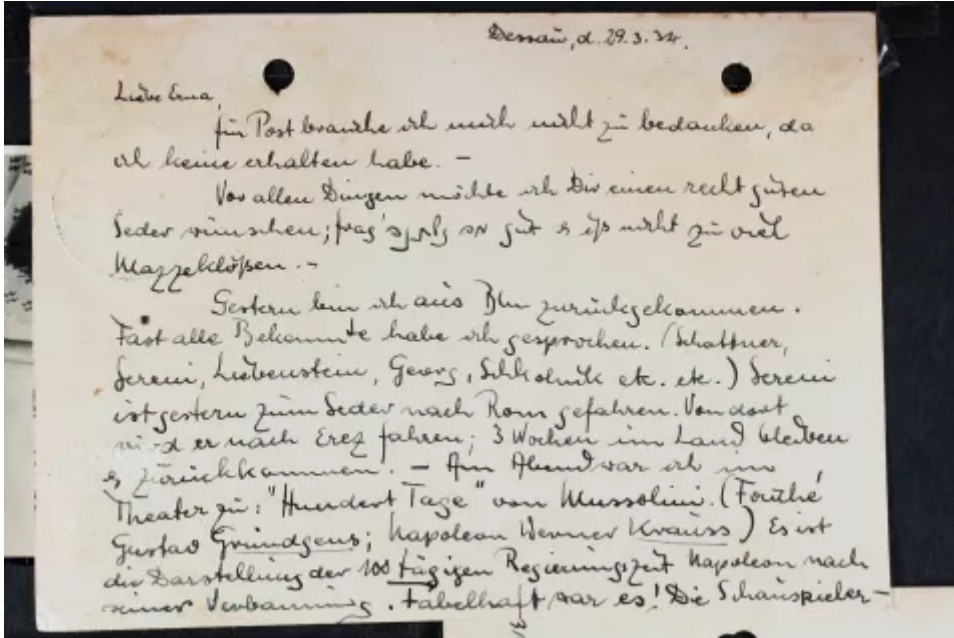 Dessau, d. 29.3.34.
Liebe Erna,
für Post brauche ich mich nicht zu bedanken, da
ich keine erhalten habe. –
Vor allen Dingen möchte ich Dir einen recht guten
Seder wünschen; frag' gut & iß nicht zu viel
Mazzeklößen. –
Gestern bin ich aus Bln zurückgekommen.
Fast alle Bekannte habe ich gesprochen. (Schattner,
Sereni, Liebenstein, Georg, Schkolnik etc. etc.) Sereni
ist gestern zum Seder nach Rom gefahren. Von dort
wird er nach Erez fahren; 3 Wochen im Land bleiben
& zurückkommen. – Am Abend war ich im
Theater zu: "Hundert Tage" von Mussolini. (Fouché
Gustav Gründgens; Napoleon Werner Krauss) Es ist
die Darstellung der 100 tägigen Regierungszeit Napoleon nach
seiner Verbannung. Fabelhaft war es! Die Schauspieler-